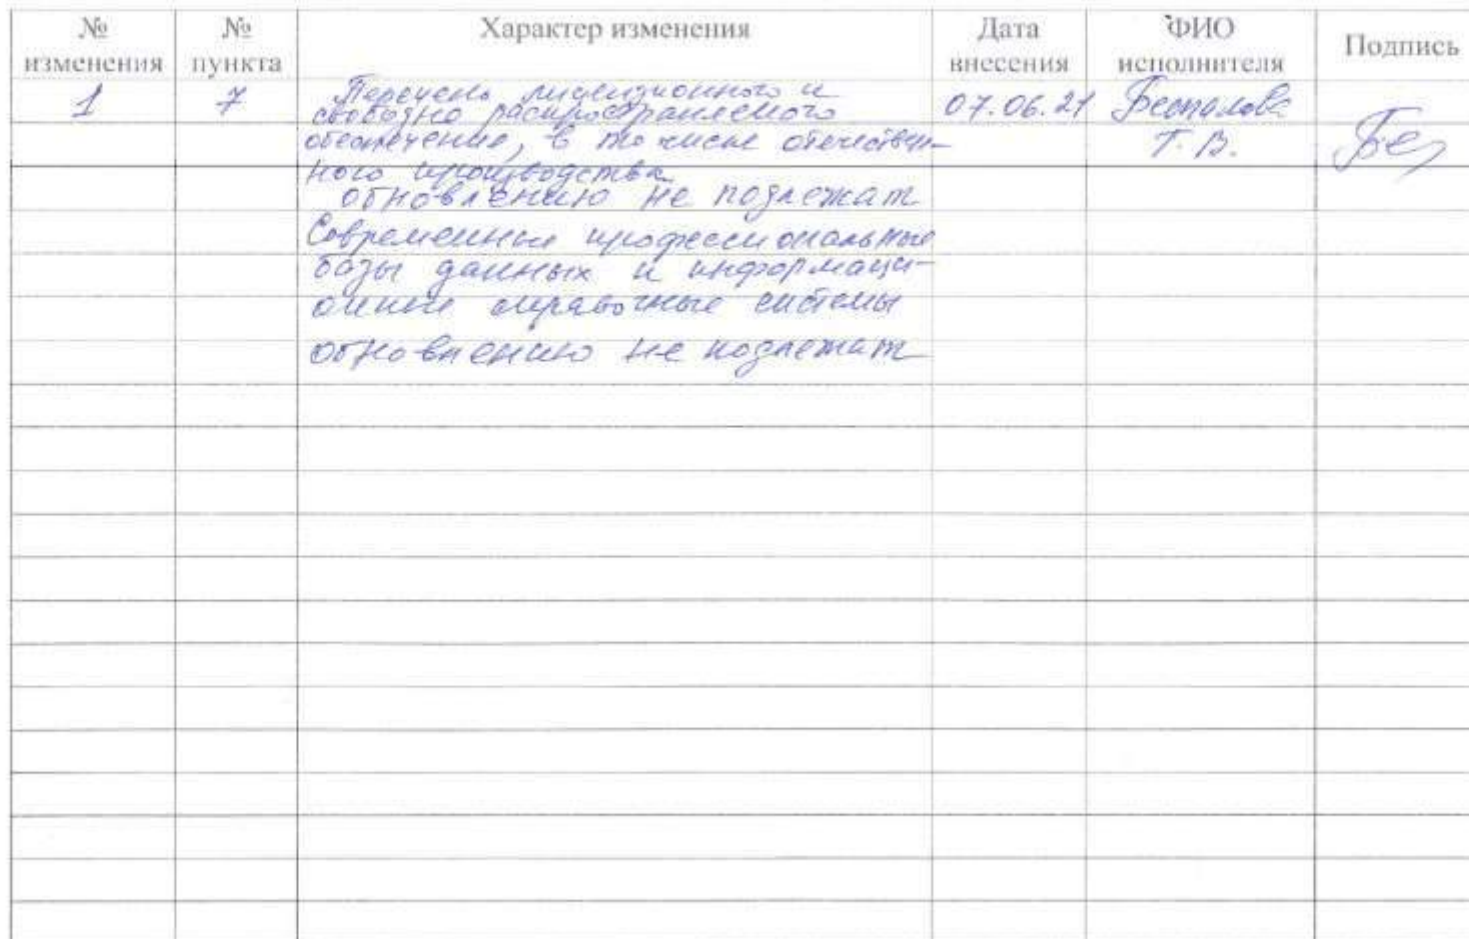 № изменения
№ пункта
Характер изменения
Дата внесения
ФИО исполнителя
Подпись
1
7
Перечень лицензионного и
свободно распространяемого
обеспечения, в том числе отечествен-
ного производства
обновлению не подлежат
Современные профессиональные
базы данных и информаци-
онные справочные системы
обновлению не подлежат
07.06.21
Беспалова
Т.В.
Бес